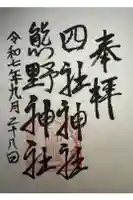 奉拝
四社神社
熊野神社
令和七年九月二十八日